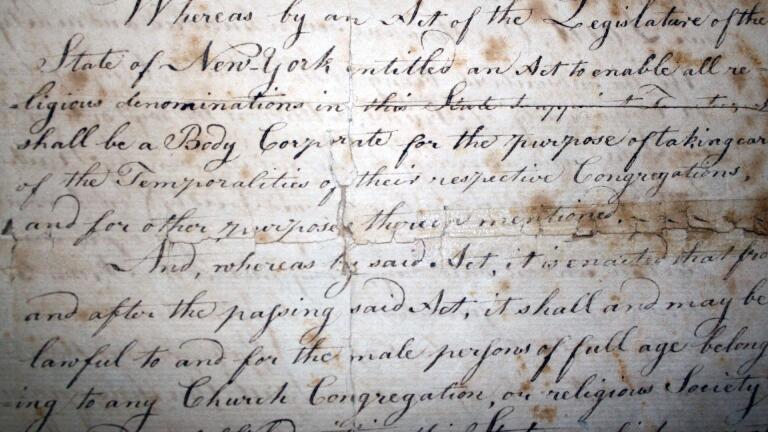 Whereas by an Act of the Legislature of the
State of New-York entitled an Act to enable all re-
-ligious denominations in this State to appoint Trustees
shall be a Body Corporate for the purpose of taking car
of the Temporalities of their respective Congregations,
and for other purposes therein mentioned.
And, whereas by said Act, it is enacted that fro
and after the passing said Act, it shall and may be
lawful to and for the male persons of full age belong
-ing to any Church Congregation, or religious Society